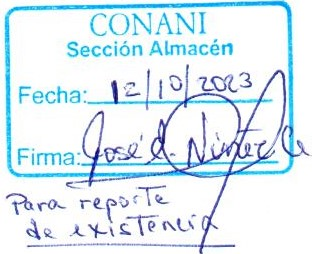 CONANI
Sección Almacén
Fecha: 12/10/2023
Firma: José A. Núñez
Para reporte
de existencia